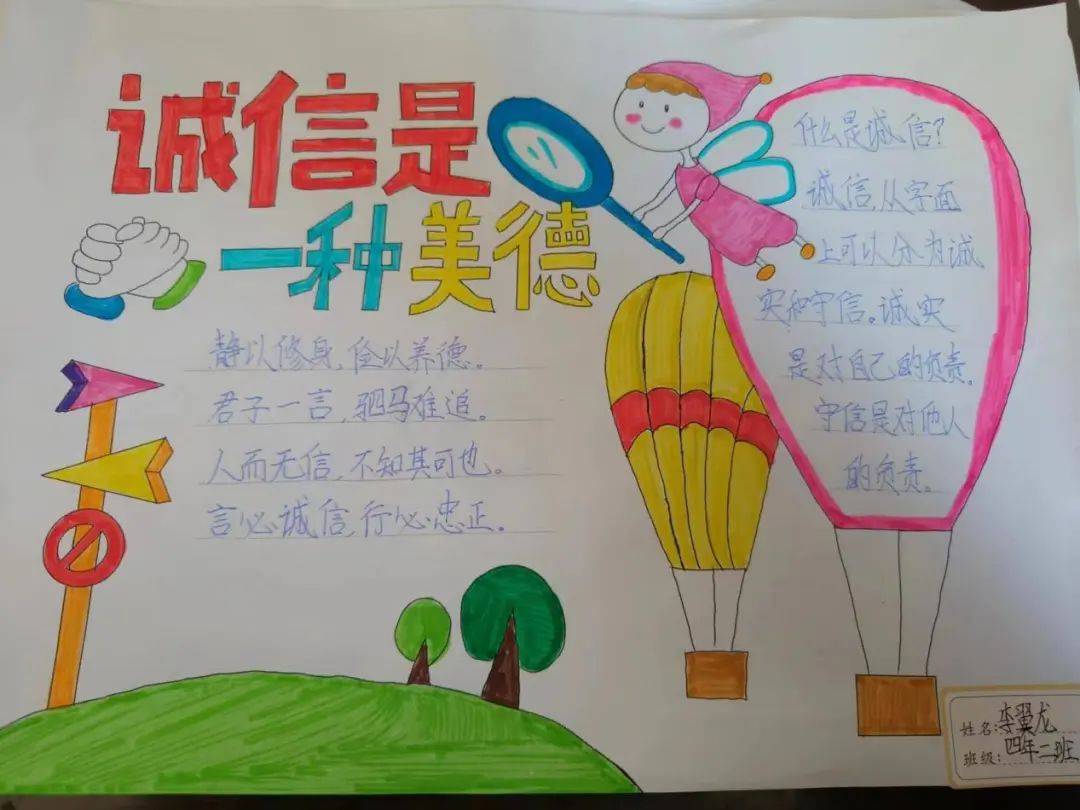 诚信是
一种美德
静以修身,俭以养德。
君子一言,驷马难追。
人而无信,不知其可也。
言必诚信,行必忠正。
什么是诚信?
诚信,从字面
上可以分为诚
实和守信。诚实
是对自己的负责。
守信是对他人
的负责。
姓名:李翼龙
班级:四年二班